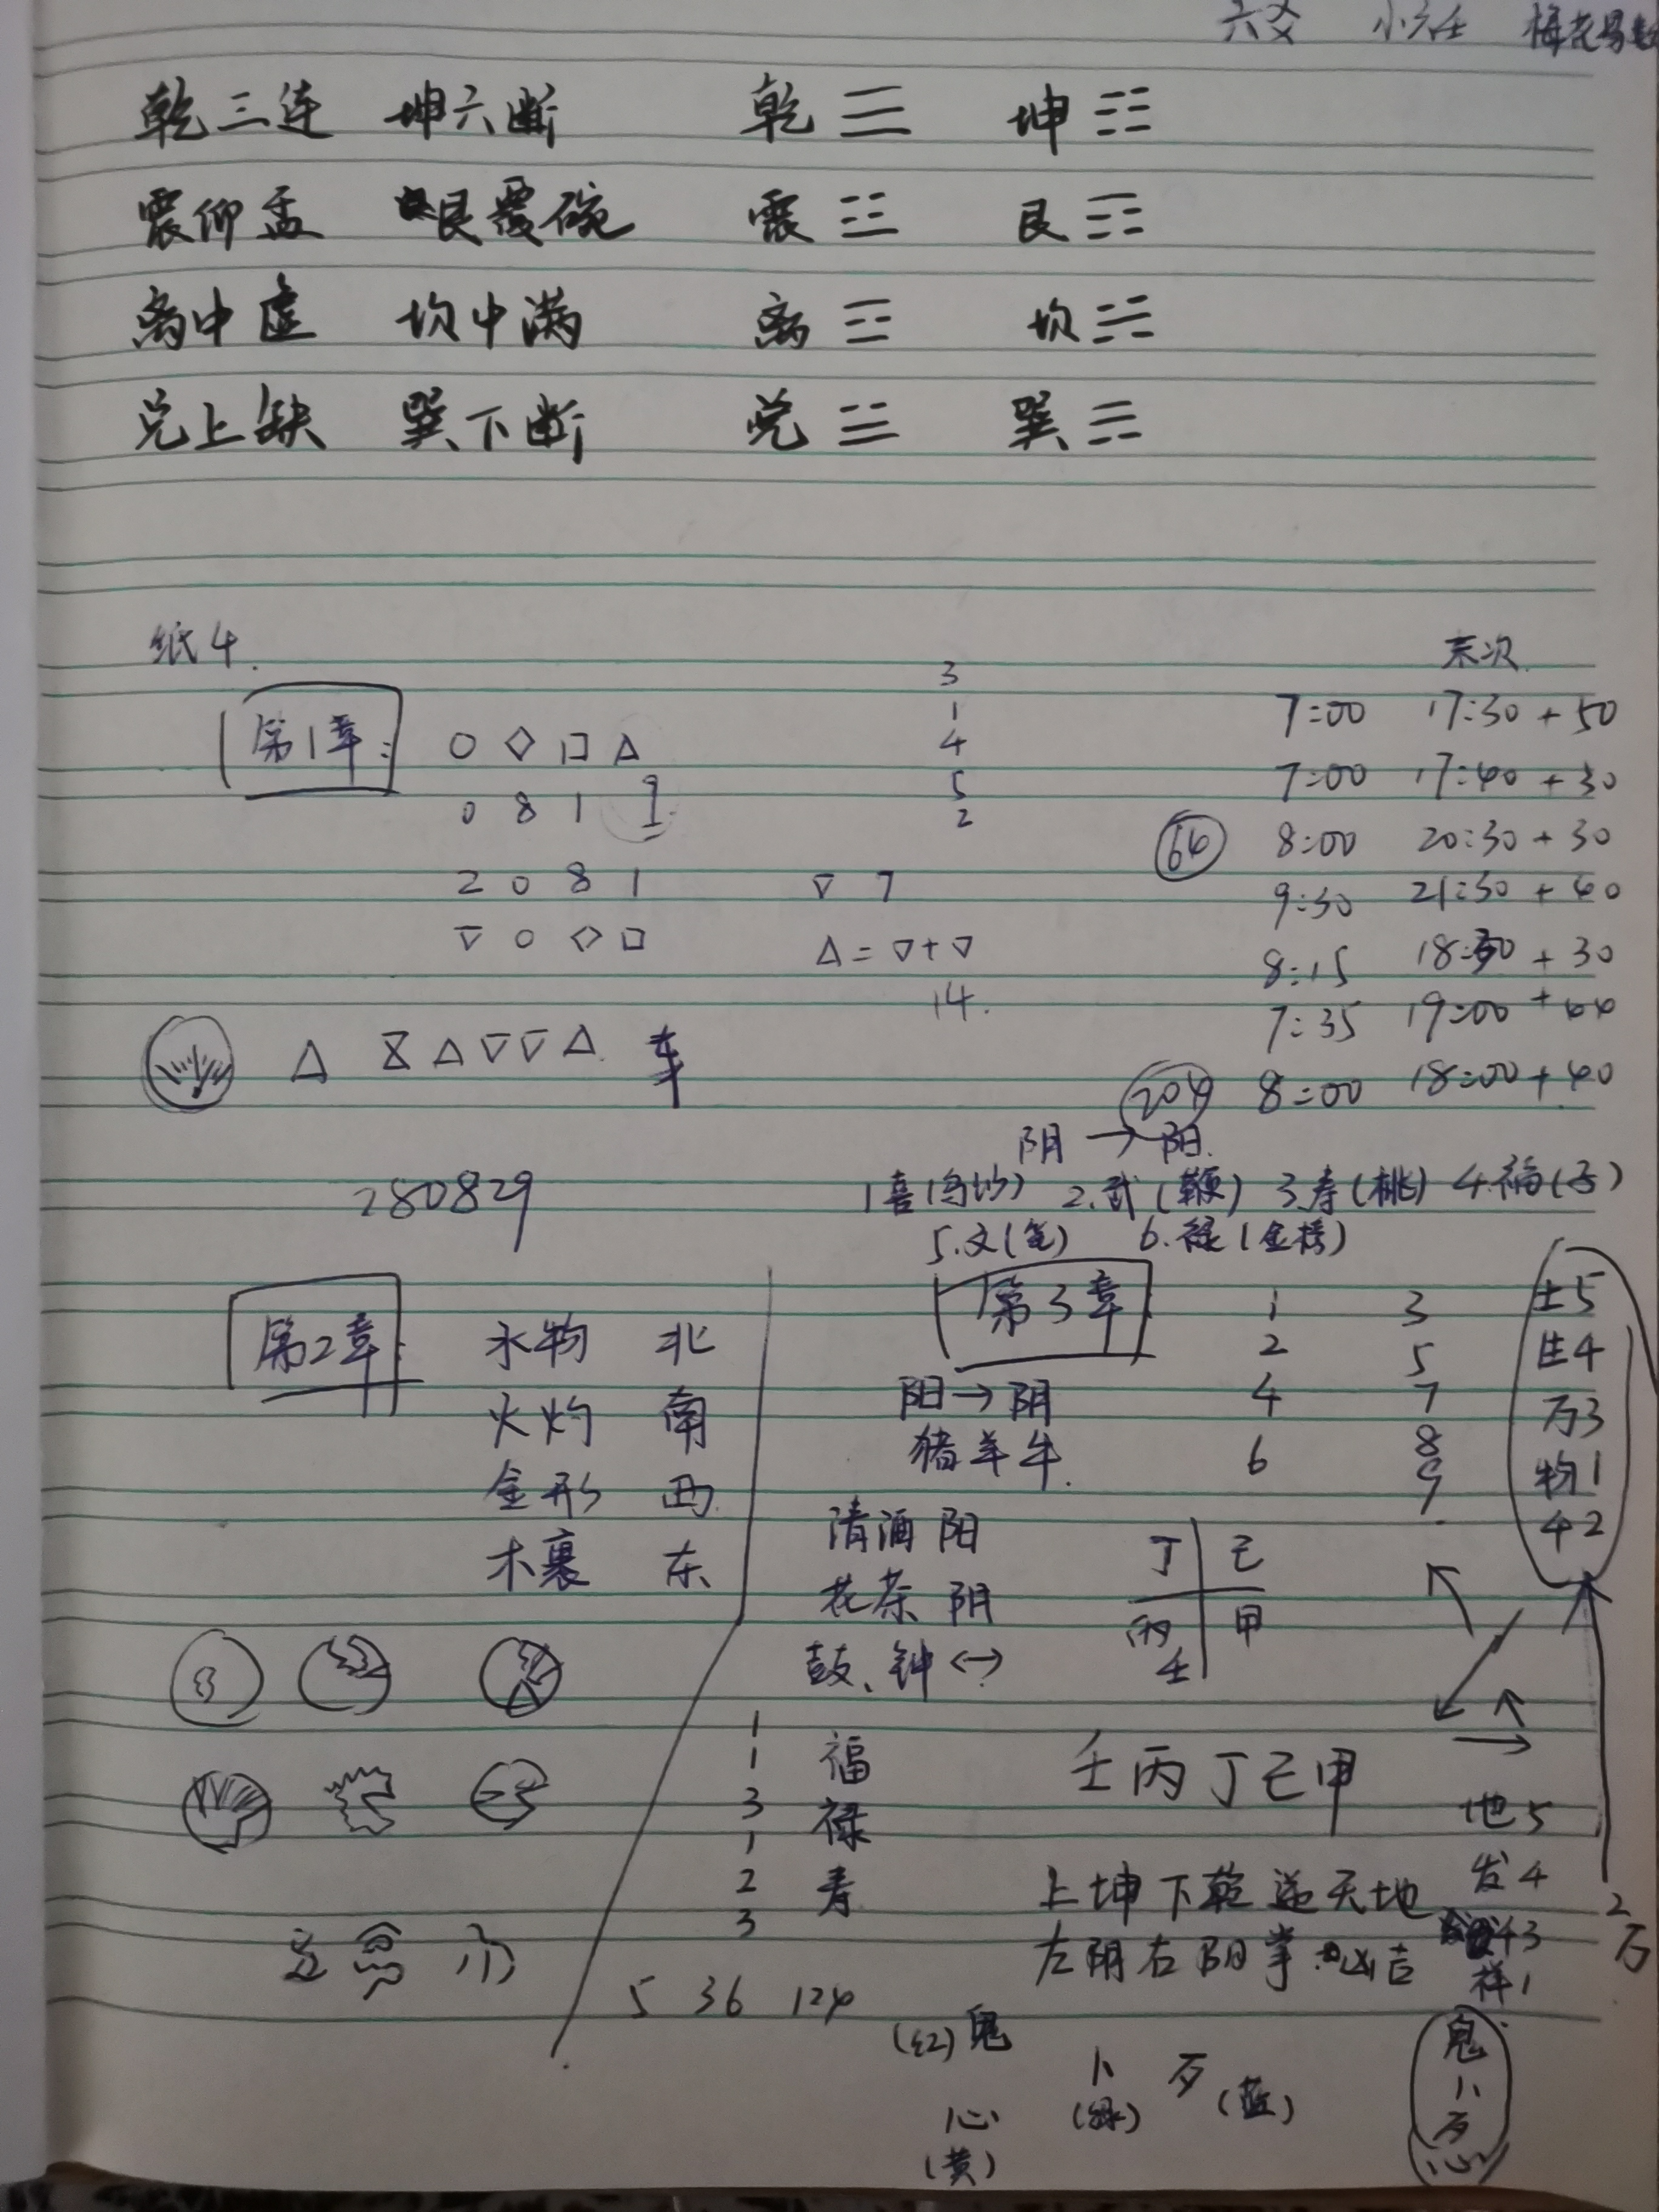 六爻 小六壬 梅花易数
乾三连 坤六断 乾 ☰ 坤 ☷
震仰盂 艮覆碗 震 ☳ 艮 ☶
离中虚 坎中满 离 ☲ 坎 ☵
兑上缺 巽下断 兑 ☱ 巽 ☴
纸4.
第1章: ○ ◇ □ △
0 8 1 9
2 0 8 1
▽ ○ ◇ □
▽ 7
△ = ▽ + ▽
14.
3
1
4
5
2
末次
7:00 17:30 + 50
7:00 17:40 + 30
64 8:00 20:30 + 30
9:30 21:30 + 40
8:15 18:30 + 30
7:35 19:00 +
204 8:00 18:00 + 40
△ △ ▽ ▽ △ 车
280829
阴 → 阳
1喜 2.武(鞭) 3.寿(桃) 4.福
5.文(笔) 6.禄(金榜)
第2章: 水物 北
火灼 南
金形 西
木裹 东
第3章
阳 → 阴
猪羊牛.
清酒 阳
花茶 阴
鼓、钟 <->
1 3
2 5
4 7
6 8
9
土5
生4
万3
物1
4 2
丁 己
丙 甲
壬
壬丙丁己甲
1
1
3
1
2
3
福
禄
寿
上坤下乾逆天地
左阴右阳掌凶吉
地5
发4
3
祥1
2
万
5 36 124
(红)鬼
卜
(绿)
歹(蓝)
心
(黄)
鬼
卜
歹
心